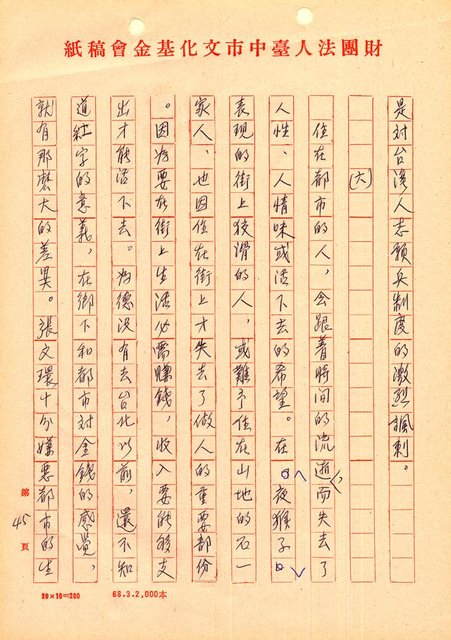 財團法人臺中市文化基金會稿紙
是對台灣人志願兵制度的激烈諷刺。
(六)
住在都市的人，会跟着時间的流逝，而失去了
人性、人情味或活下去的希望。在「夜猴子」
表現的街上狡滑的人，或難予住在山地的石一
家人，也因住在街上才失去了做人的重要部份
。因為要在街上生活必需賺錢，收入要能够支
出才能活下去。為德没有去台北以前，還不知
道紅字的意義，在鄉下和都市対金錢的感覺，
就有那麽大的差異。張文環十分嫌惡都市的生
第45頁
20×10=200
68.3.2,000本